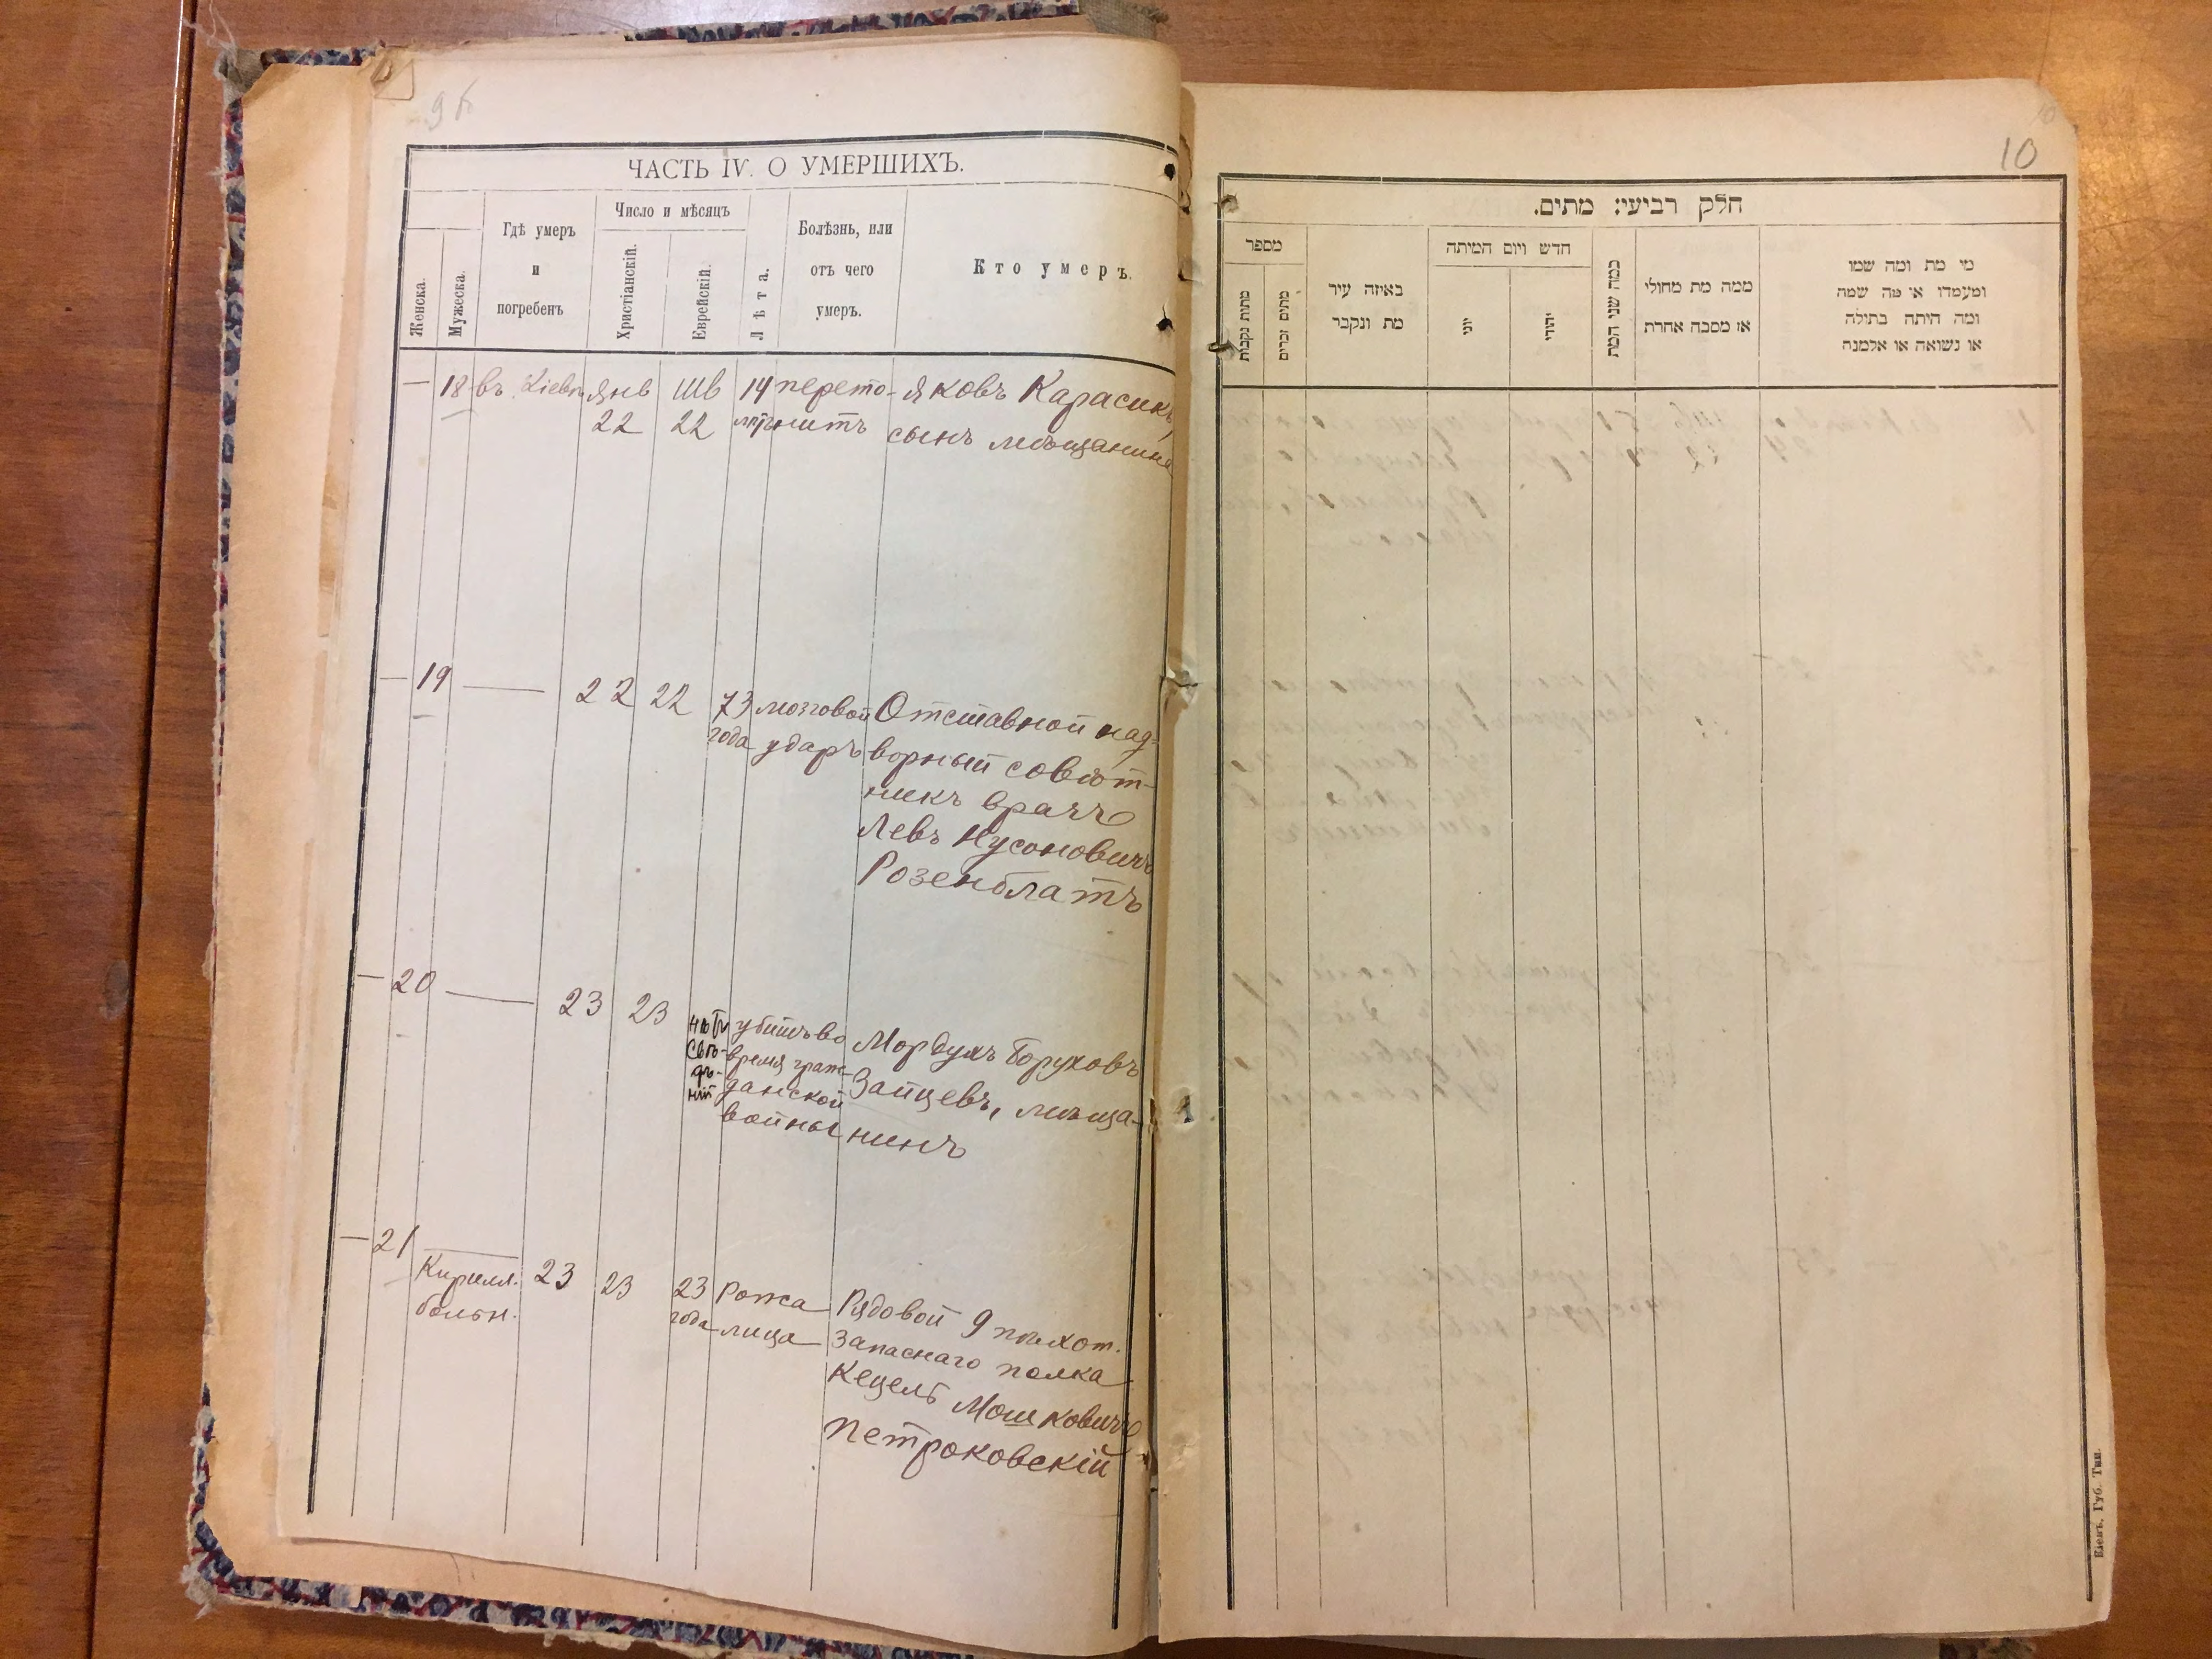 9б
ЧАСТЬ IV. О УМЕРШИХЪ.
Женска.
Мужеска.
Гдѣ умеръ
и
погребенъ
Число и мѣсяцъ
Христіанскій.
Еврейскій.
Лѣта.
Болѣзнь, или
отъ чего
умеръ.
Кто умеръ.
— 18 въ Кіевѣ Янв Шв 14 перето- Яковъ Карасикъ,
22 22 лѣтъ нитъ сынъ мѣщанина
— 19 — 22 22 73 мозговой Отставной над-
года ударъ ворный совѣт-
никъ врачъ
Левъ Нусоновичъ
Розенблатъ
— 20 — 23 23 нѣтъ убитъ во Мордухъ Боруховъ
свѣ- время граж- Зайцевъ, мѣща-
дѣ- данской нинъ
ній войны
— 21 — 23 23 23 Рожа Рядовой 9 пѣхот.
Кирилл. года лица запаснаго полка
больн. Кецель Мошковичъ
Петроковскій
10
חלק רביעי: מתים.
מספר
מתות נקבות
מתים זכרים
באיזה עיר
מת ונקבר
חדש ויום המיתה
יוני
יהודי
כמה שני המת
ממה מת מחולי
או מסבה אחרת
מי מת ומה שמו
ומעמדו או מה שמה
ומה היתה בתילה
או נשואה או אלמנה
Кіевъ, Губ. Тип.